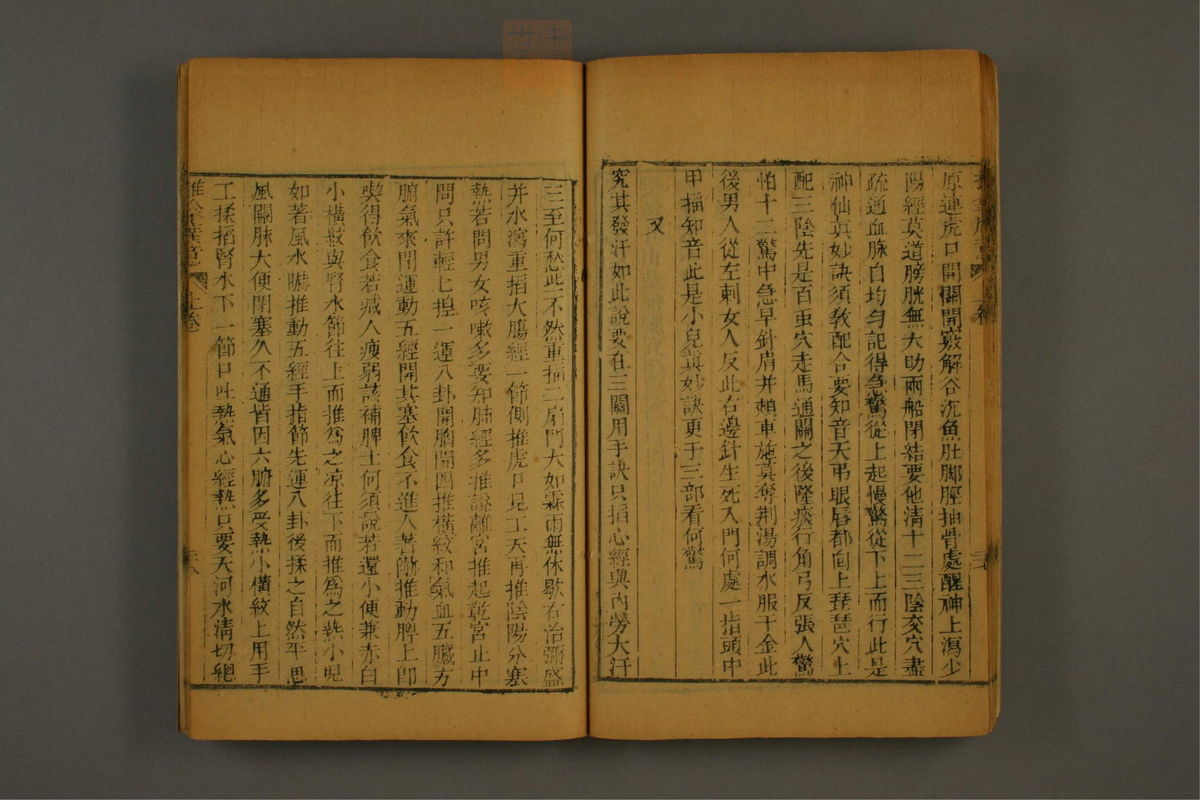 原連虎口開關開竅解谷沉魚肚脚脛抽骨處醒神上瀉少
陽經莫道膀胱無大助兩船閉結要他清十二三陰交穴盡
疏通血脉自均勻記得急驚從上起慢驚從下上而行此是
神仙真妙訣須教配合要知音天弔眼唇都向上琵琶穴上
配三陰先是百虫穴走馬通關之後隆痰行角弓反張人驚
怕十二驚中急早針肩井頰車施莫奪荆湯調水服千金此
後男人從左刺女人反此右邊針生死入門何處一指頭中
甲掐知音此是小兒真妙訣更于三部看何驚
又
究其發汗如此說要在三關用手訣只掐心經與內勞大汗
三至何愁此不然重掐二扇門大如霖雨無休歇右治彌盛
并水瀉重掐大腸經一節側推虎口見工夫再推陰陽分寒
熱若問男女咳嗽多要知肺經多推說離宮推起乾宮止中
間只許輕上捏一運八卦開胸開四推橫紋和氣血五臟方
腑氣來閉運動五經開其塞飲食不進人著嚇推動脾上即
喫得飲食若减人瘦弱該補脾土何須說若還小便兼赤白
小橫紋與腎水節往上而推爲之凉往下而推爲之熱小兒
如著風水嚇推動五經手指節先運八卦後揉之自然平息
風關脉大便閉塞久不通皆因六腑多受熱小橫紋上用手
工揉掐腎水下一節口吐熱氣心經熱只要天河水清切總
上卷